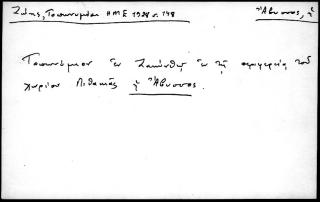 Ζώης, Τοπωνυμίαι ΗΜΕ 1928 σ. 148
Ἄβυσσος, ἡ
Τοπωνύμιον ἐν Ζακύνθῳ ἐν τῇ περιφερείᾳ τοῦ
χωρίου Λιθακιᾶς ἡ Ἄβυσσος.